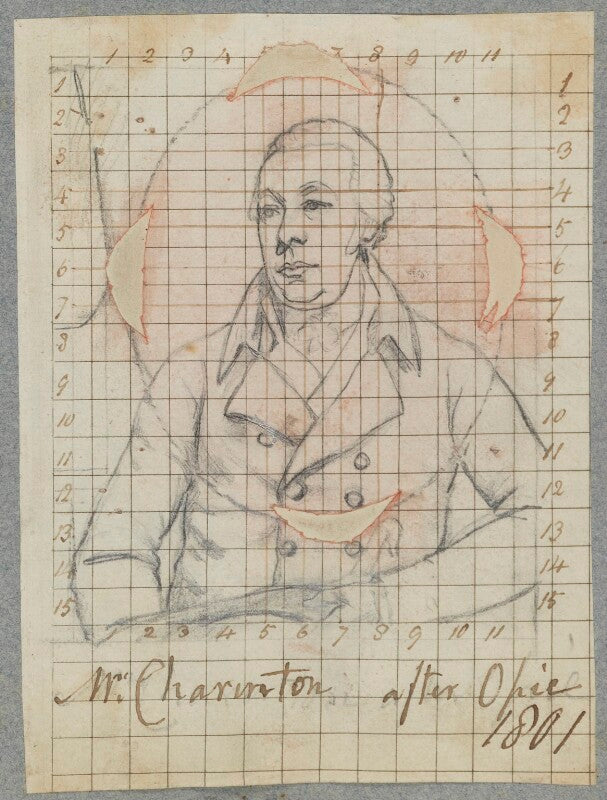 1 2 3 4 5 7 8 9 10 11
1 1
2 2
3 3
4 4
5 5
6 6
7 7
8 8
9 9
10 10
11 11
12 12
13 13
14 14
15 15
1 2 3 4 5 6 7 8 9 10 11
Mr. Charinton after Opie
1801